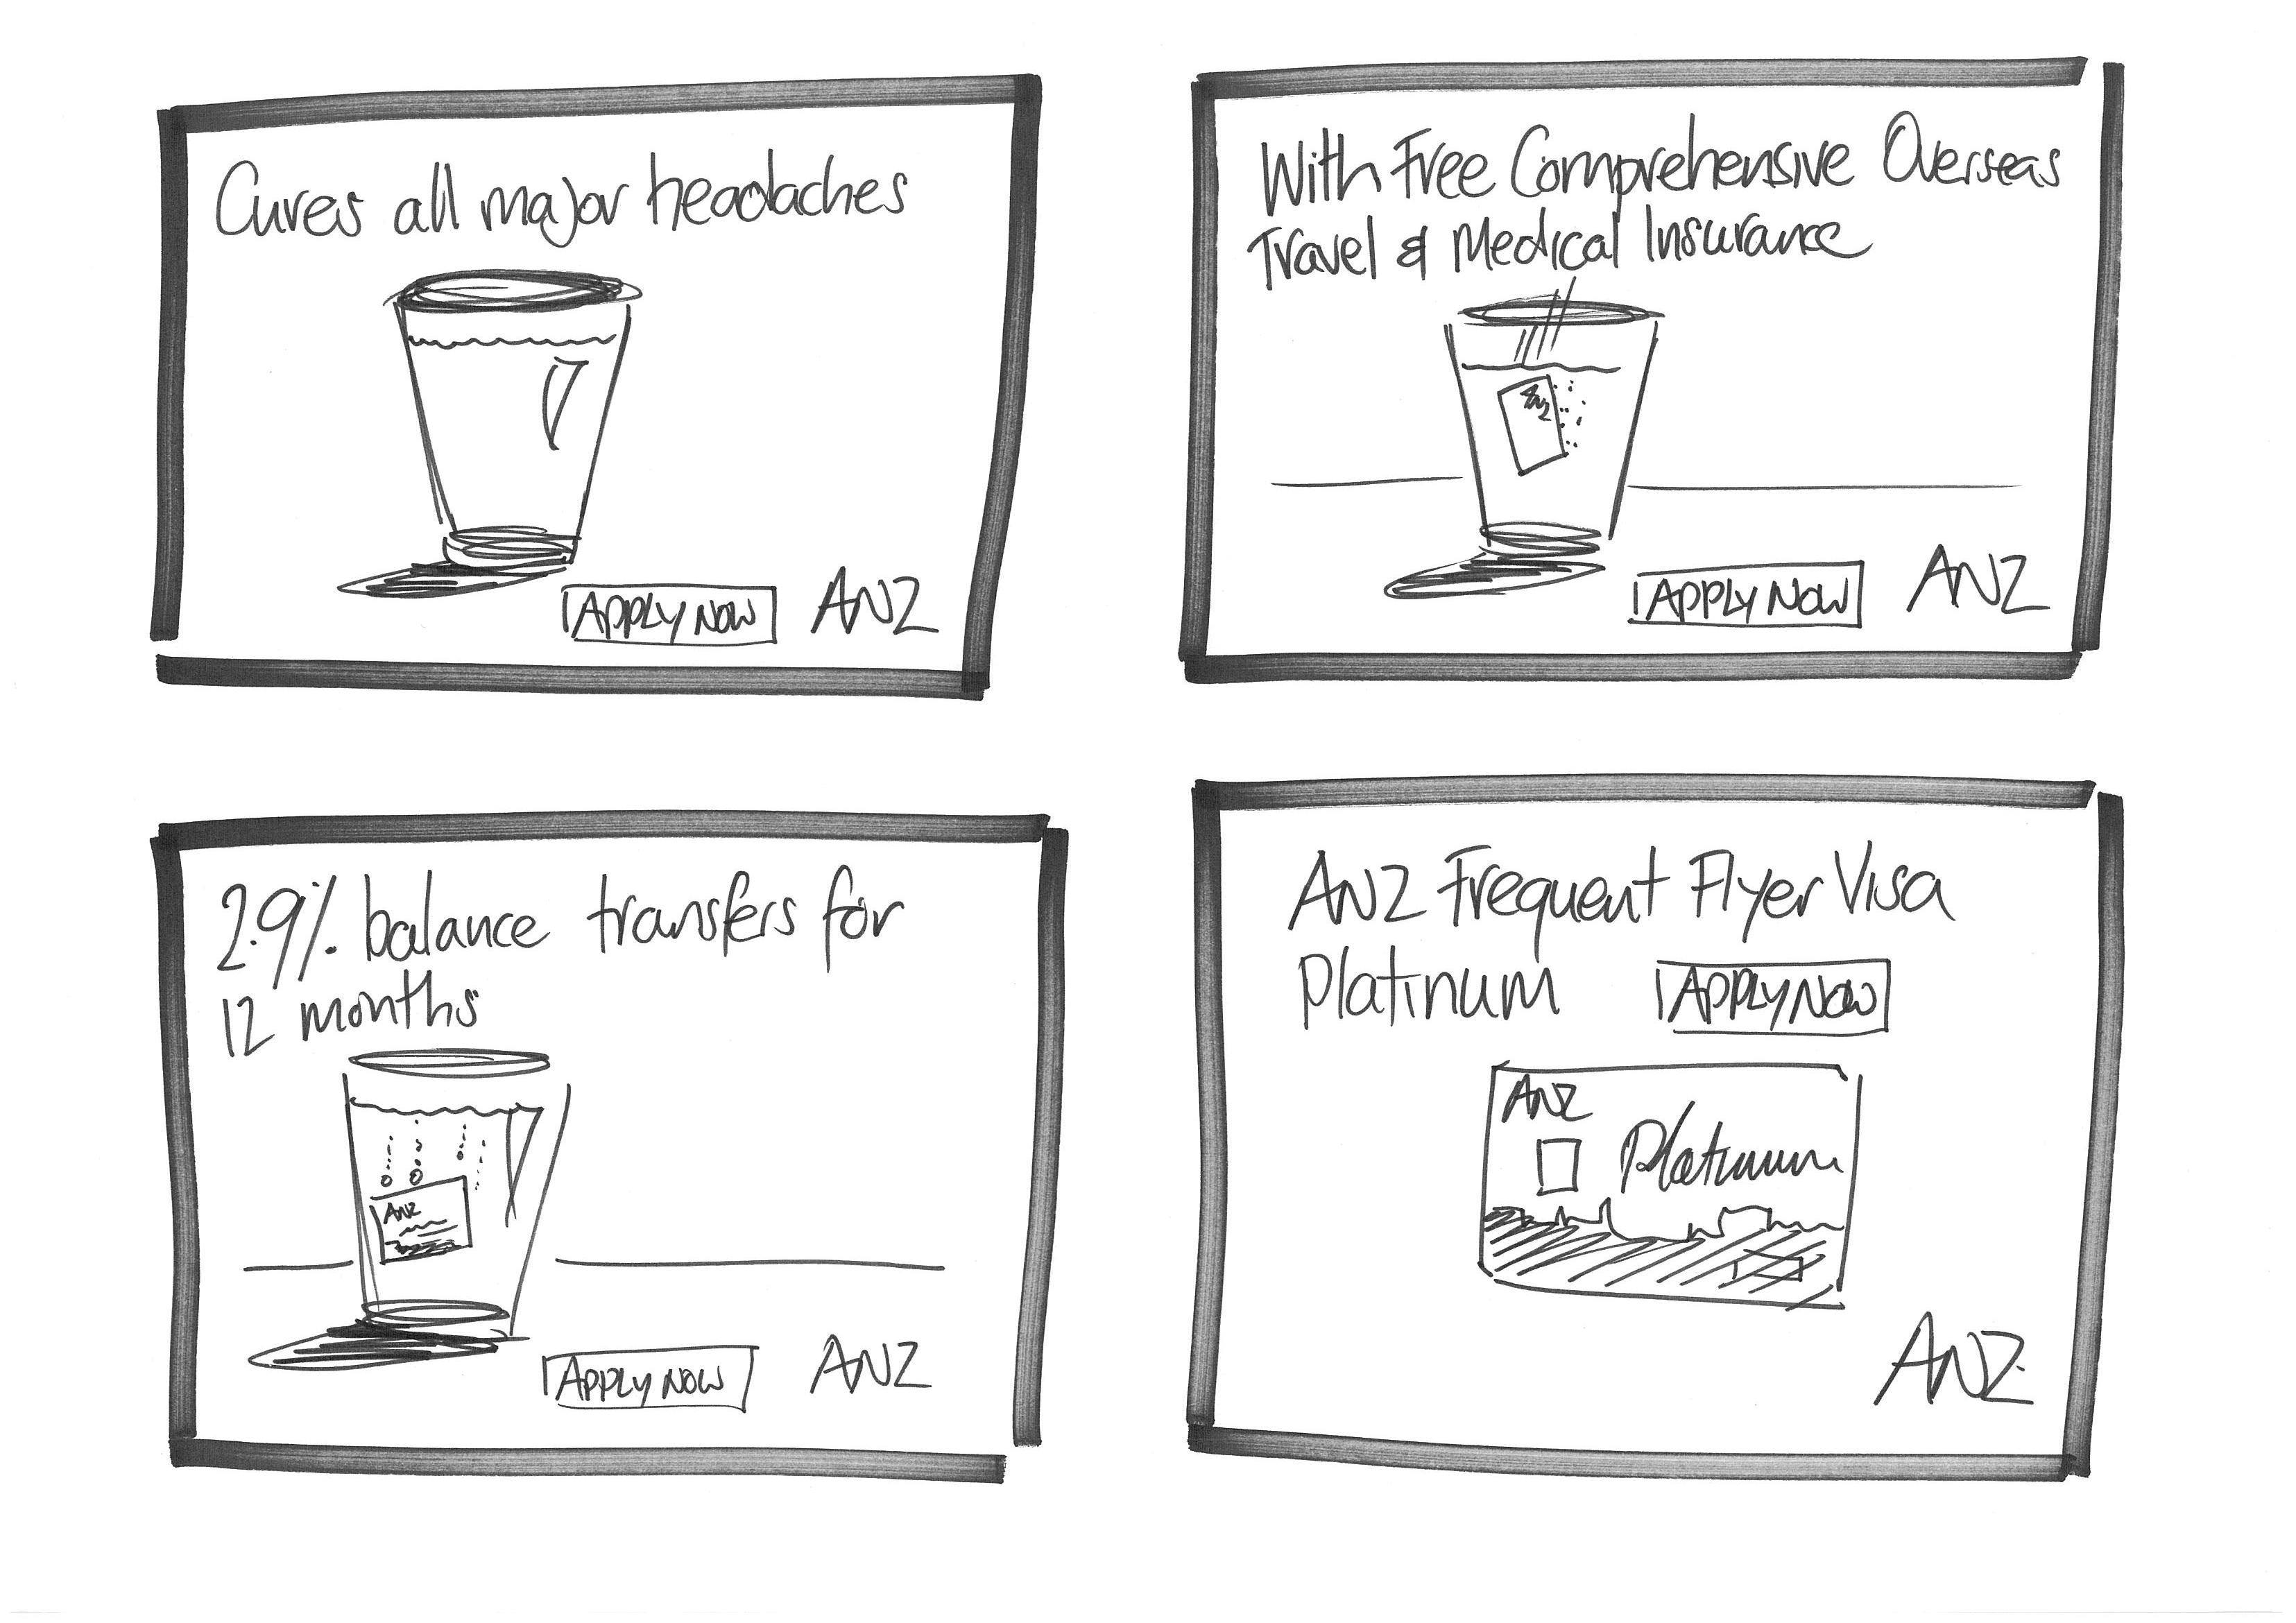 Cures all major headaches
APPLY NOW
ANZ
With Free Comprehensive Overseas
Travel & Medical Insurance
ANZ
APPLY NOW
ANZ
2.9% balance transfers for
12 months
ANZ
APPLY NOW
ANZ
ANZ Frequent Flyer Visa
Platinum
APPLY NOW
ANZ
Platinum
ANZ